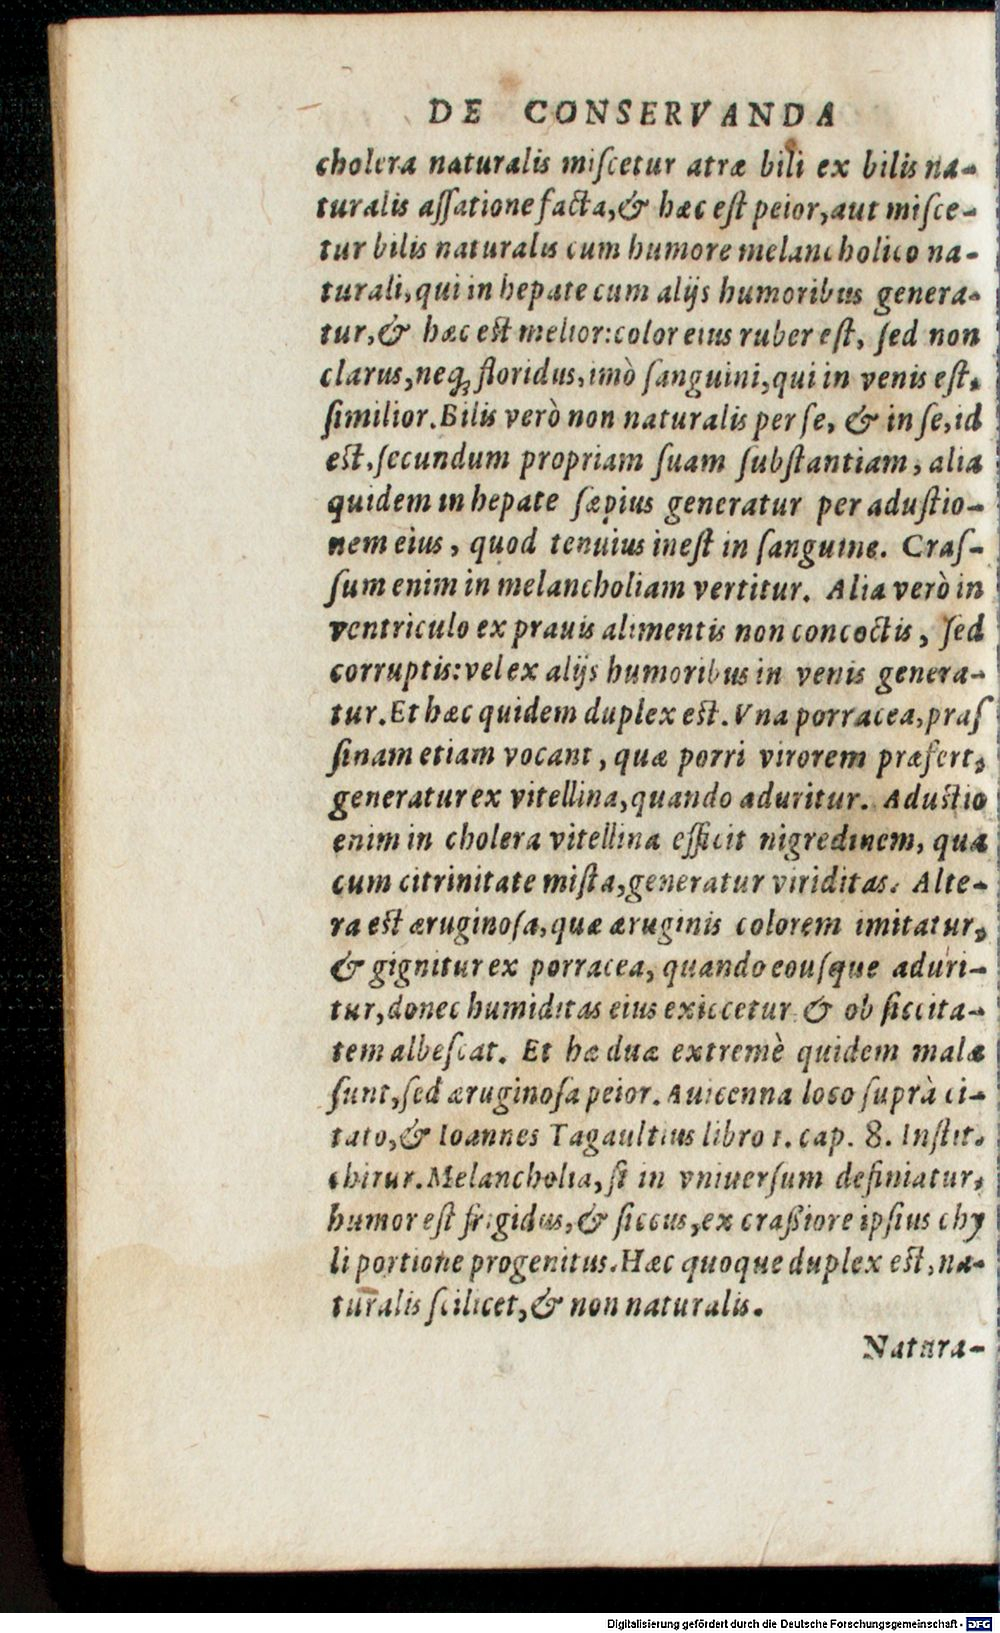 DE CONSERVANDA
cholera naturalis miſcetur atræ bili ex bilis na-
turalis aſſatione facta, & hæc eſt peior, aut miſce-
tur bilis naturalis cum humore melancholico na-
turali, qui in hepate cum alijs humoribus genera-
tur, & hæc eſt melior: color eius ruber eſt, ſed non
clarus, neq; floridus, imò ſanguini, qui in venis eſt,
ſimilior. Bilis verò non naturalis per ſe, & in ſe, id
eſt, ſecundum propriam ſuam ſubſtantiam, alia
quidem in hepate ſæpius generatur per aduſtio-
nem eius, quod tenuius ineſt in ſanguine. Craſ-
ſum enim in melancholiam vertitur. Alia verò in
ventriculo ex prauis alimentis non concoctis, ſed
corruptis: vel ex alijs humoribus in venis genera-
tur. Et hæc quidem duplex eſt. Vna porracea, praſ
ſinam etiam vocant, quæ porri virorem præfert,
generatur ex vitellina, quando aduritur. Aduſtio
enim in cholera vitellina efficit nigredinem, qua
cum citrinitate miſta, generatur viriditas. Alte-
ra eſt æruginoſa, quæ æruginis colorem imitatur,
& gignitur ex porracea, quando eouſque aduri-
tur, donec humiditas eius exiccetur & ob ſiccita-
tem albeſcat. Et hæ duæ extremè quidem malæ
ſunt, ſed æruginoſa peior. Auicenna loco ſuprà ci-
tato, & Ioannes Tagaultius libro 1. cap. 8. Inſtit.
chirur. Melancholia, ſi in vniuerſum definiatur,
humor eſt frigidus, & ſiccus, ex craßiore ipſius chy
li portione progenitus. Hæc quoque duplex eſt, na-
turalis ſcilicet, & non naturalis.
Natura-
Digitalisierung gefördert durch die Deutsche Forschungsgemeinschaft - DFG